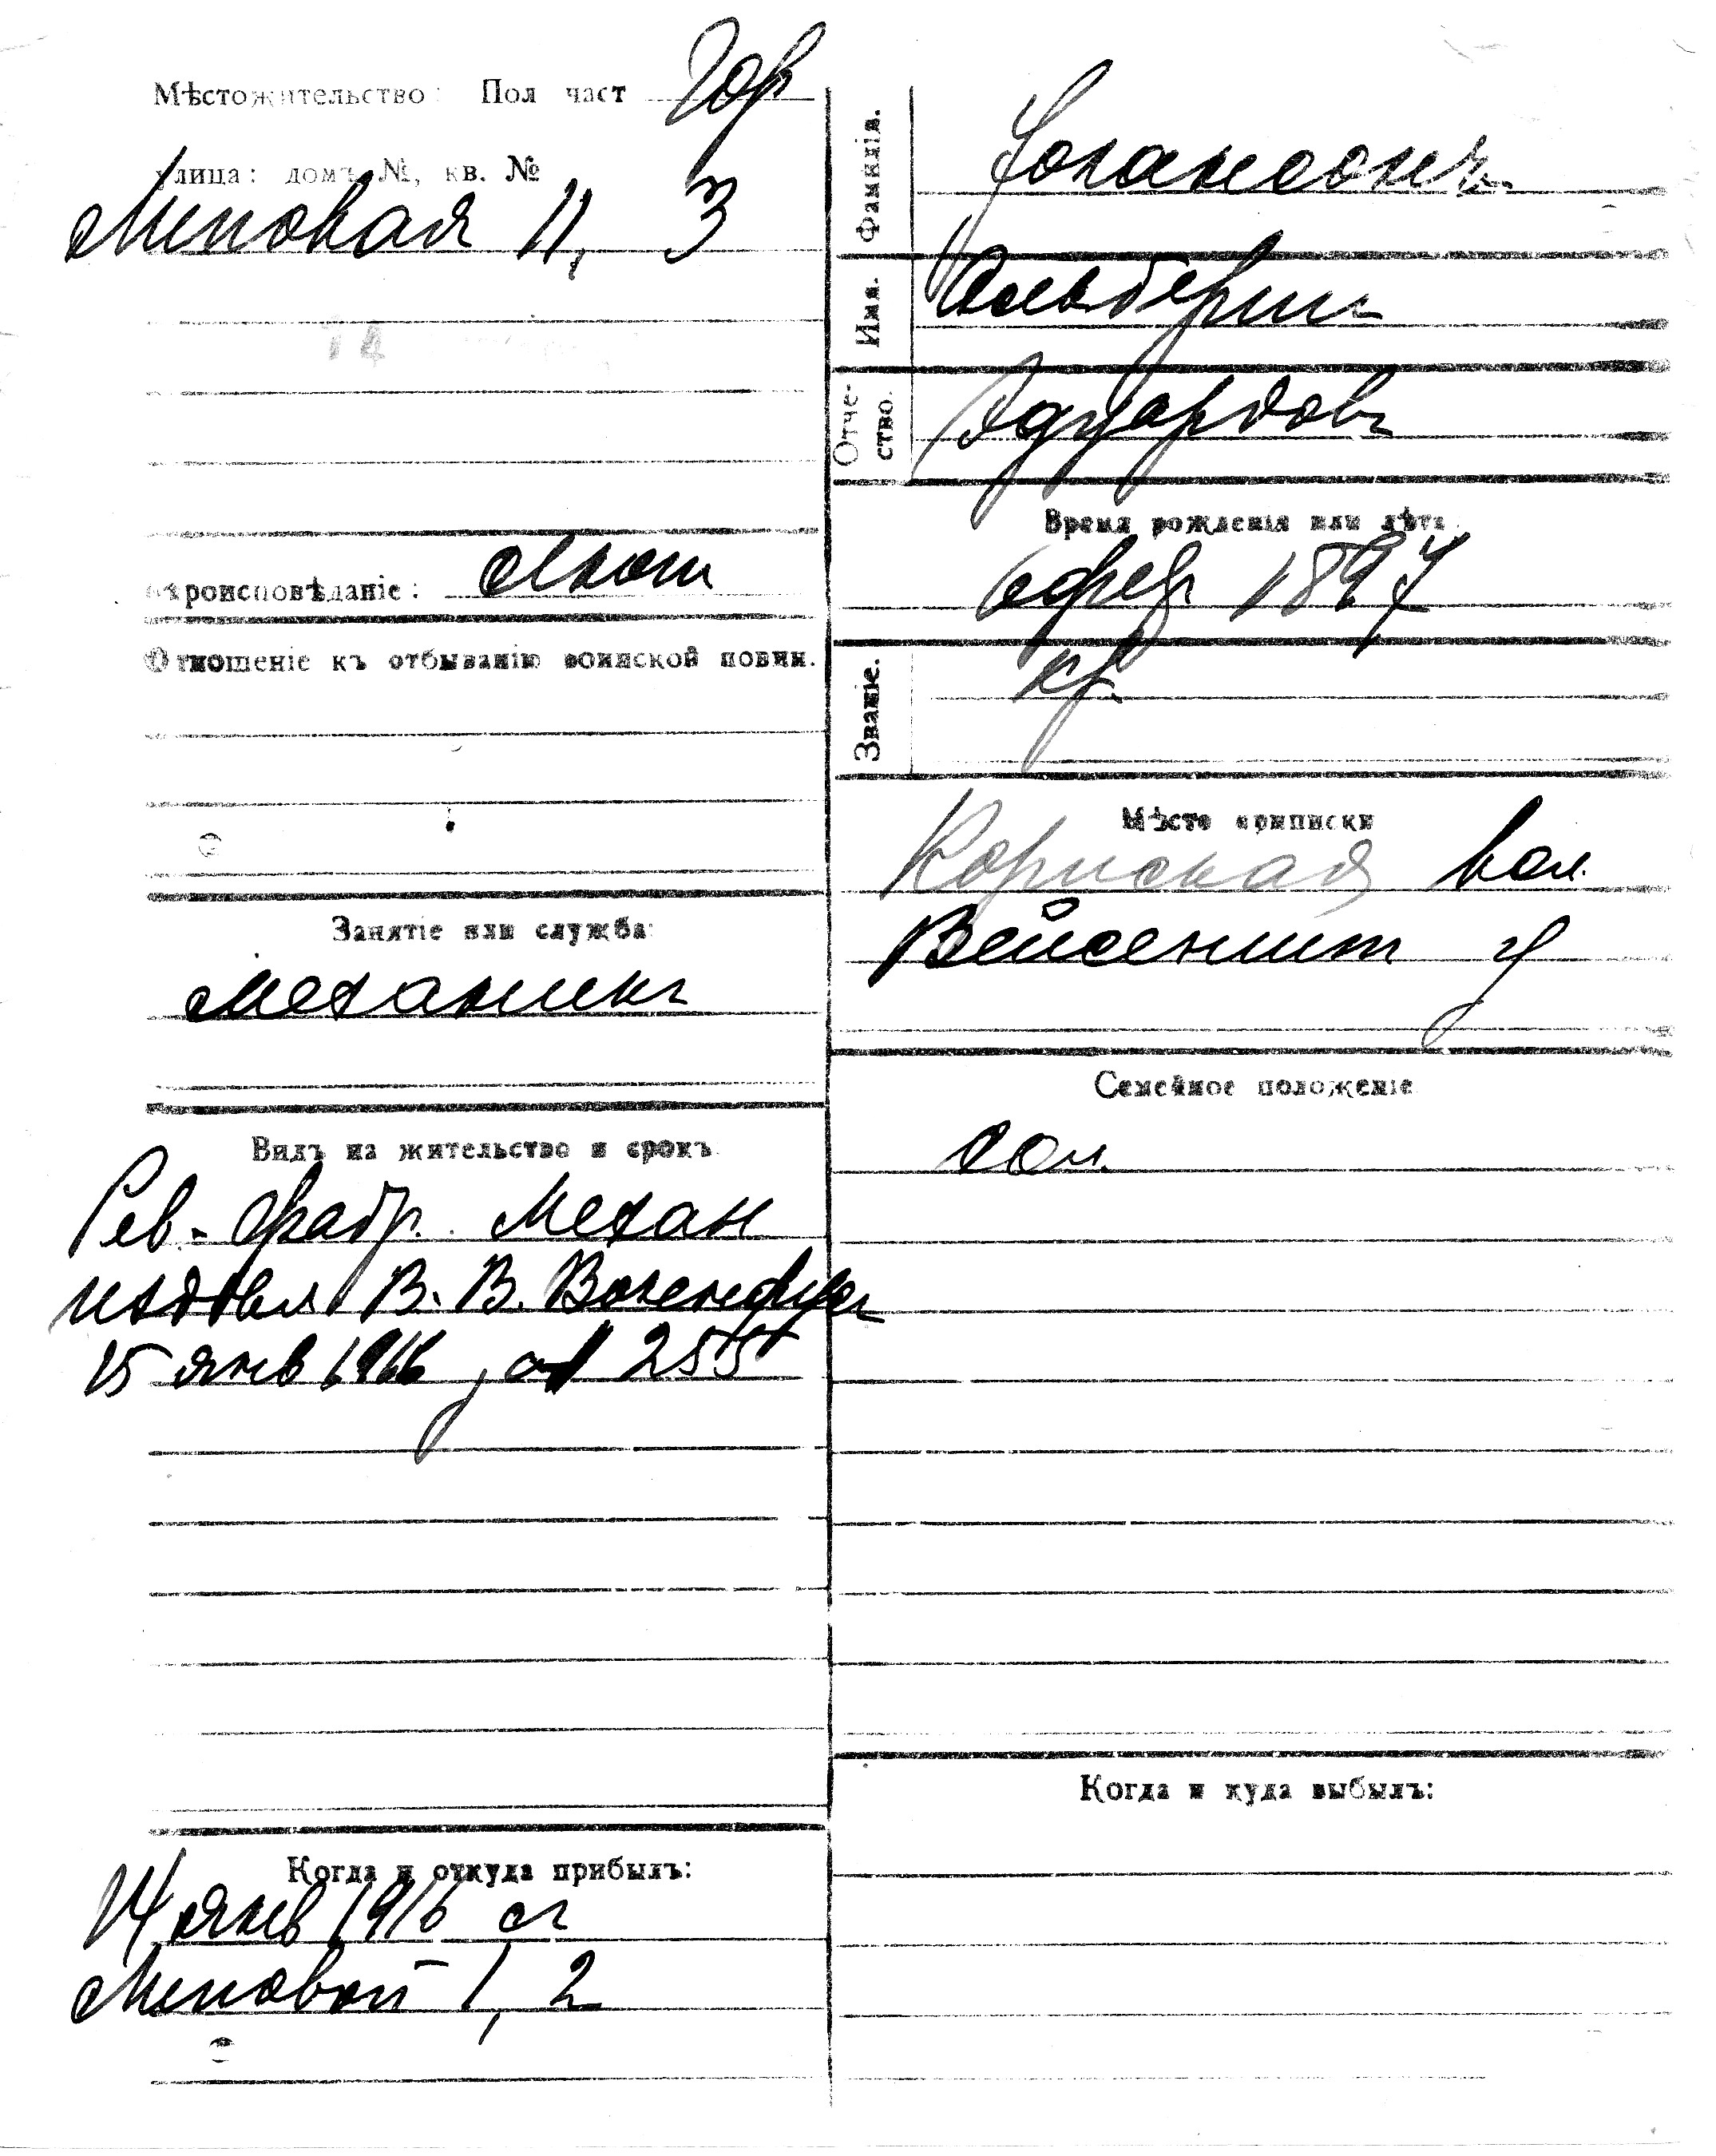 Мѣстожительство: Пол част Гор
улица: домъ №, кв. №
Липовая 11, 3
14
вѣроисповѣданіе: Лют
Отношеніе къ отбыванію воинской повин.
Занятіе или служба:
Механикъ
Видъ на жительство и срокъ
Рев. фабр. Механ
издѣл В. В.
15 янв 1916 255
Когда и откуда прибылъ:
14 янв 1916 съ
Липовой 1, 2
Фамилія. Іогансонъ
Имя. Альберт
Отче-
ство. Эдуардовъ
Время рожденія или лѣта
6 фев 1897
Званіе. кр.
Мѣсто приписки
Корпская вол.
Вейсеншт у
Семейное положеніе
хол.
Когда и куда выбылъ: